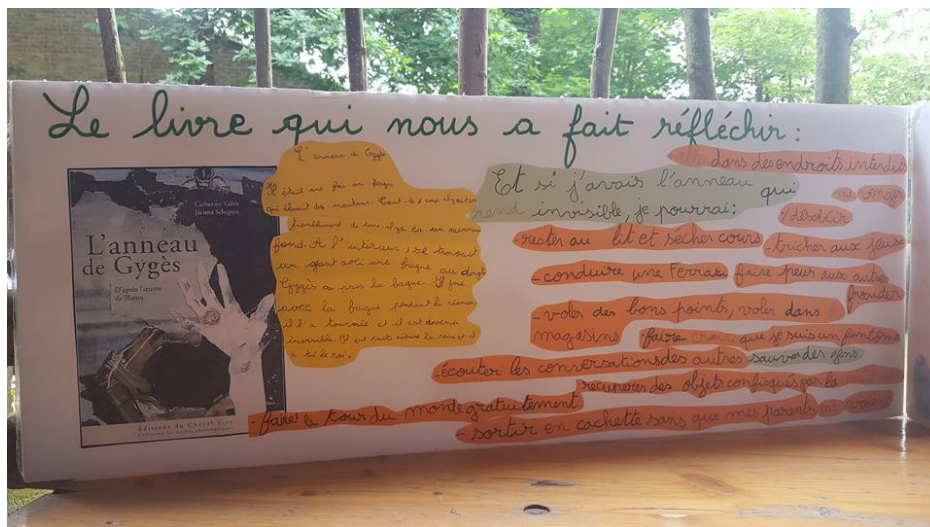 Le livre qui nous a fait réfléchir :
Catherine Vallée
Jacinta Schepers
L'anneau
de Gygès
D'après l'œuvre
de Platon
Éditions du Cheval Vert
L'anneau de Gygès
Il était une fois un berger
qui élevait des moutons.
tremblement de terre,
fond. A l'intérieur, se trouvait
un géant avec une bague au doigt
Gygès a pris la bague. Il joue
avec la bague pendant la réunion
il l'a tournée et il est devenu
invisible. la reine et il
a tué le roi.
Et si j'avais l'anneau qui
rend invisible, je pourrai :
aller dans des endroits interdits
me venger
désobéir
-rester au lit et sécher cours
-tricher aux jeux
-conduire une Ferrari
faire peur aux autres
frauder
-voler des bons points, voler dans
magasins
-faire croire que je suis un fantôme
-écouter les conversations des autres
sauver des gens.
récupérer des objets confisqués par la
-faire le tour du monde gratuitement
-sortir en cachette sans que mes parents me voient